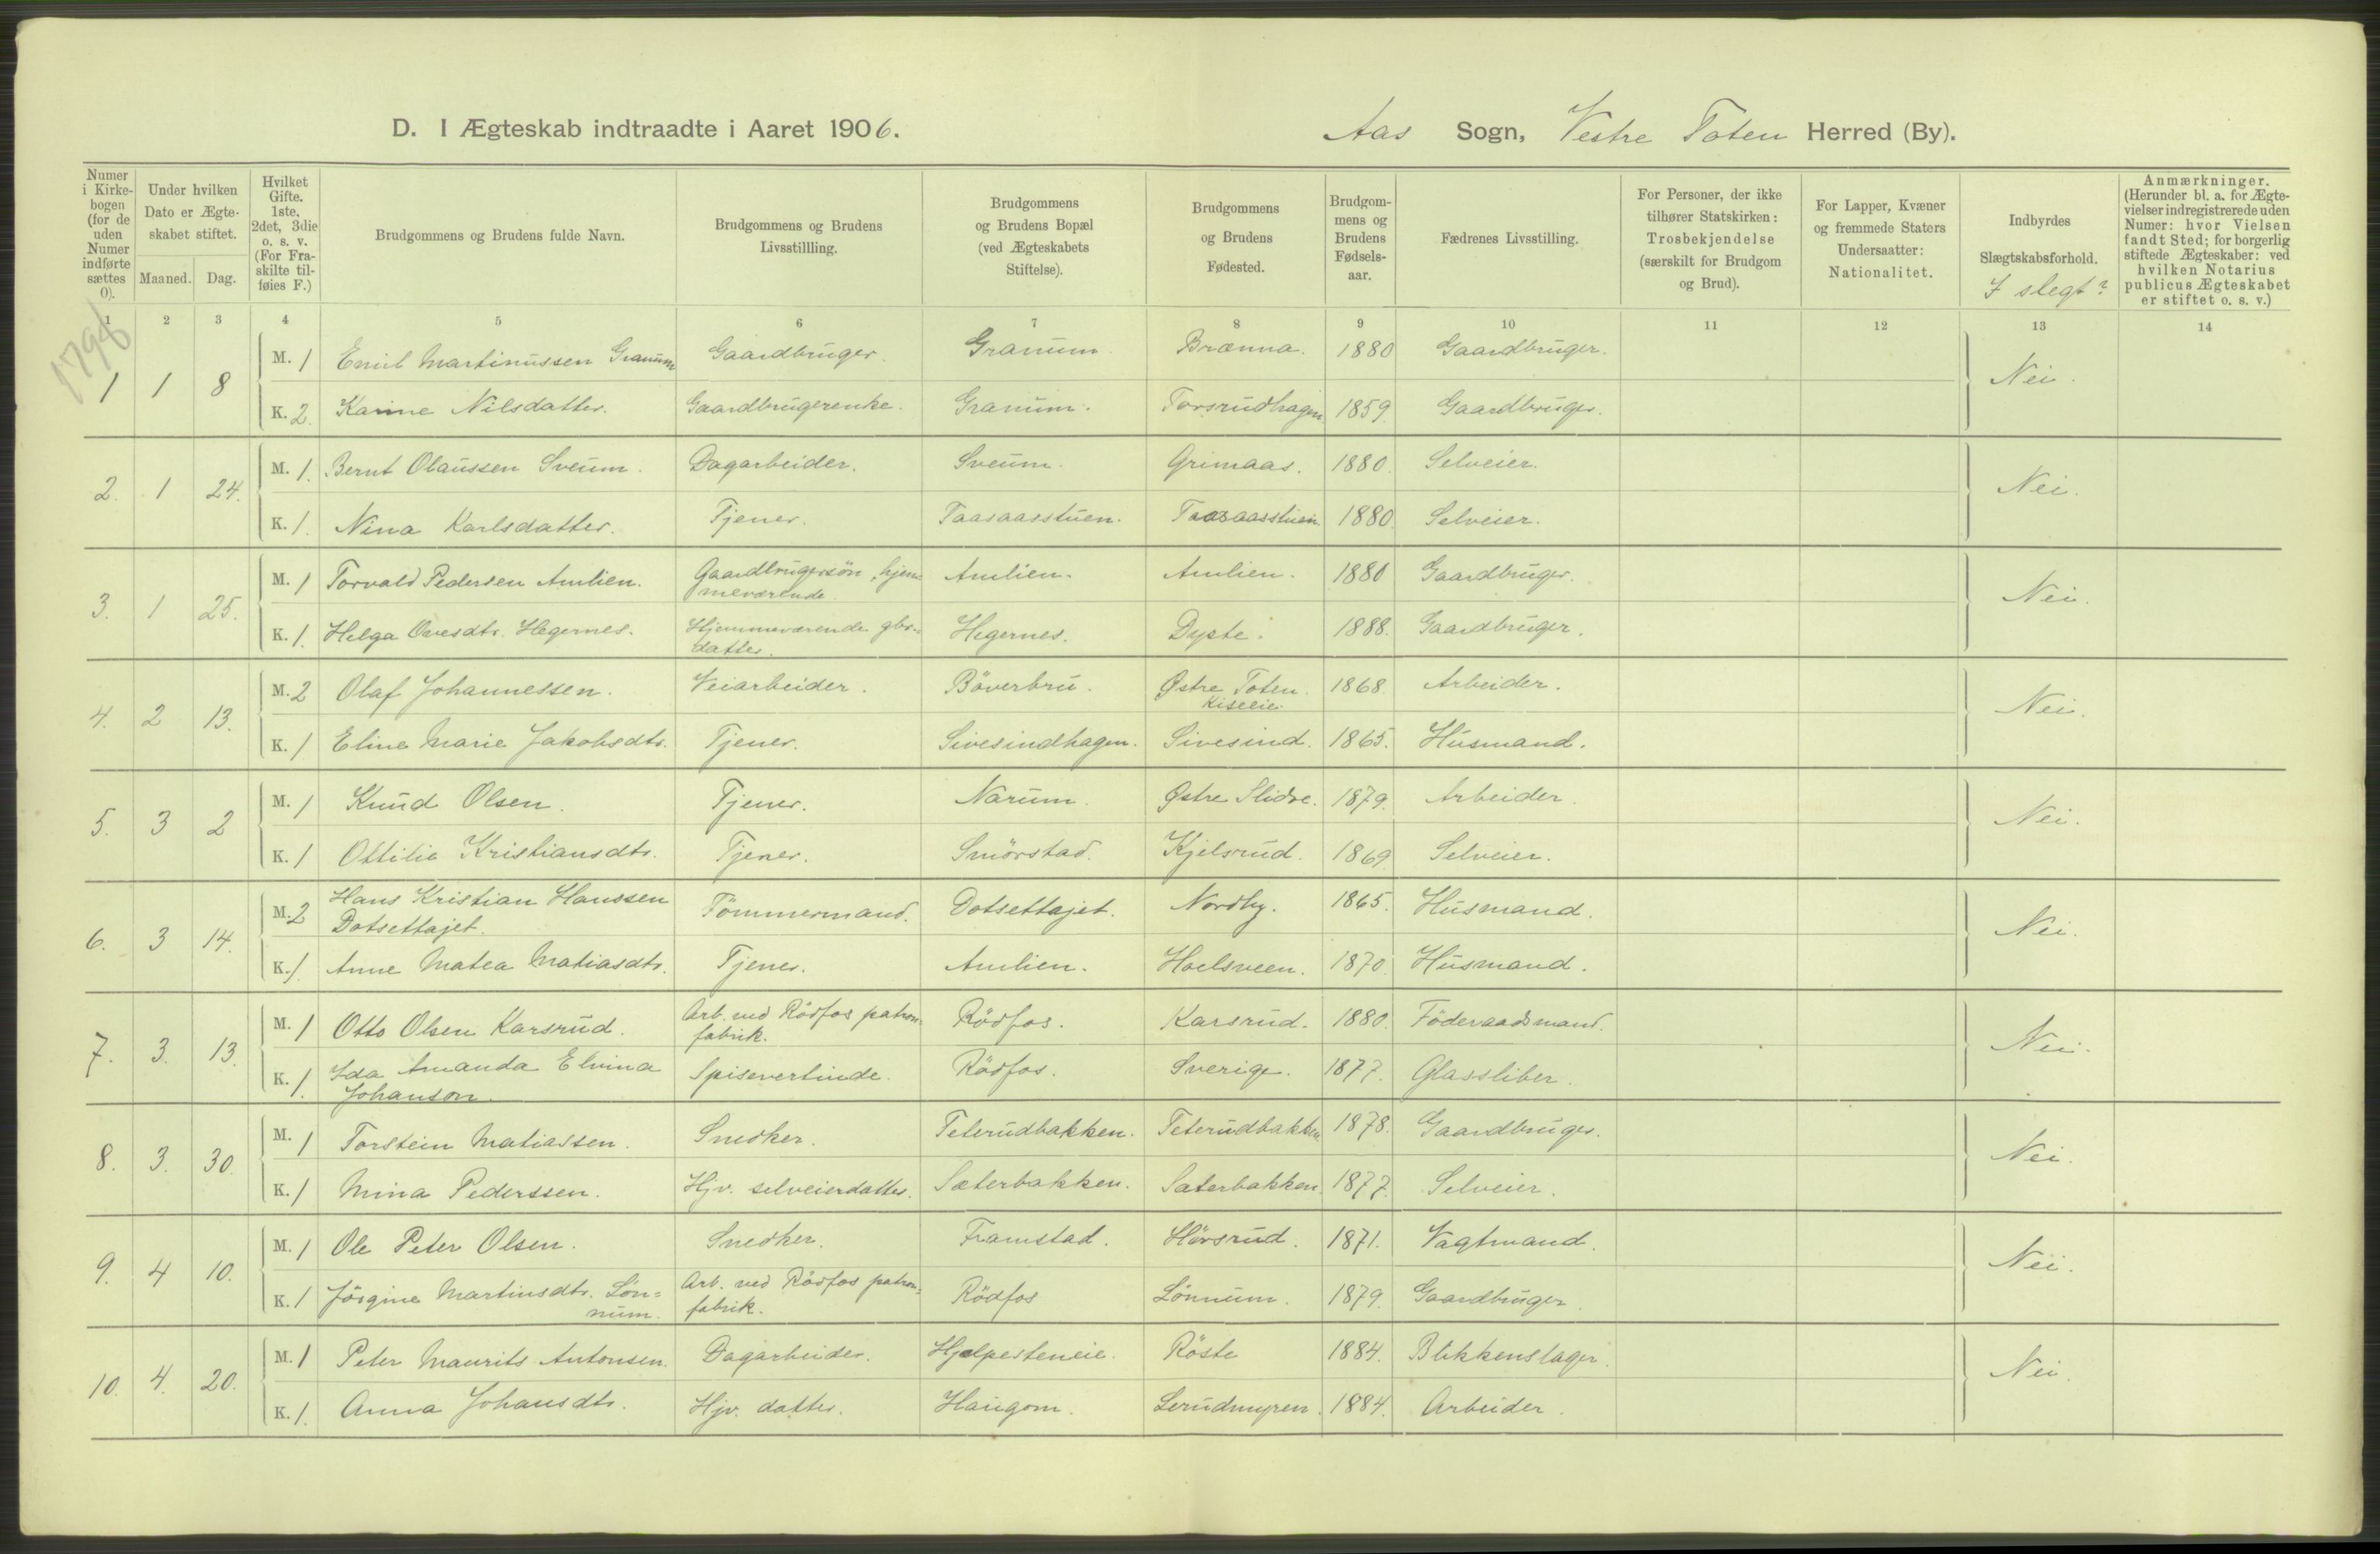 D. I Ægteskab indtraadte i Aaret 1906.
Aas Sogn, Vestre Toten Herred (By).
Numer i Kirkebogen (for de uden Numer indførte sættes 0).
Under hvilken Dato er Ægteskabet stiftet.
Maaned. Dag.
Hvilket Gifte. 1ste, 2det, 3die o. s. v. (For Fraskilte tilføies F.)
Brudgommens og Brudens fulde Navn.
Brudgommens og Brudens Livsstillling.
Brudgommens og Brudens Bopæl (ved Ægteskabets Stiftelse).
Brudgommens og Brudens Fødested.
Brudgommens og Brudens Fødselsaar.
Fædrenes Livsstilling.
For Personer, der ikke tilhører Statskirken: Trosbekjendelse (særskilt for Brudgom og Brud).
For Lapper, Kvæner og fremmede Staters Undersaatter: Nationalitet.
Indbyrdes Slægtskabsforhold.
I slegt?
Anmærkninger. (Herunder bl. a. for Ægtevielser indregistrerede uden Numer: hvor Vielsen fandt Sted; for borgerlig stiftede Ægteskaber: ved hvilken Notarius publicus Ægteskabet er stiftet o. s. v.)
1 2 3 4 5 6 7 8 9 10 11 12 13 14
1 1 8 M. 1 Emil Martinussen Granum Gaardbruger. Granum. Brænna. 1880 Gaardbruger. Nei.
K. 2. Karine Nilsdatter. Gaardbrugerenke. Granum. Torsrudhagen. 1859 Gaardbruger.
2. 1 24. M. 1. Bernt Olaussen Sveum. Dagarbeider. Sveum. Grimaas. 1880. Selveier. Nei.
K. 1. Nina Karlsdatter. Tjener. Taasaasstuen. Taasaasstuen 1880. Selveier.
3. 1 25. M. 1 Torvald Pedersen Amlien. Gaardbrugersön, hjem=
meværende. Amlien. Amlien. 1880 Gaardbruger. Nei.
K. 1. Helga Ovesdtr. Hegernes. Hjemmeværende gbr.=
datter. Hegernes. Dyste. 1888. Gaardbruger.
4. 2 13. M. 2 Olaf Johannessen. Veiarbeider. Böverbru. Østre Toten.
Kiseeie. 1868. Arbeider. Nei.
K. 1 Eline Marie Jakobsdtr. Tjener. Sivesindhagen. Sivesind. 1865. Husmand.
5. 3 2 M. 1 Knud Olsen. Tjener. Narum. Østre Slidre. 1879. Arbeider. Nei.
K. 1 Ottilie Kristiansdtr. Tjener. Smörstad. Kjelsrud. 1869 Selveier.
6. 3 14. M. 2 Hans Kristian Hanssen
Dotsettajet. Tömmermand. Dotsettajet. Nordby. 1865. Husmand. Nei.
K. 1 Anne Matea Matiasdtr. Tjener. Amlien. Hoelsveen. 1870. Husmand.
7. 3. 13. M. 1 Otto Olsen Karsrud. Arb. ved Rödfos patron=
fabrik. Rödfos. Karsrud. 1880. Föderaadsmand. Nei.
K. 1. Ida Amanda Elvina
Johanson. Spisevertinde. Rödfos. Sverige. 1877. Glassliber.
8. 3. 30. M. 1 Torstein Matiassen. Snedker. Teterudbakken. Teterudbakken 1878. Gaardbruger. Nei.
K. 1 Mina Pederssen. Hjv. selveierdatter. Sæterbakken. Sæterbakken 1877. Selveier.
9. 4 10. M. 1 Ole Peter Olsen. Snedker. Framstad. Hörsrud. 1871. Vagtmand. Nei.
K. 1 Jörgine Martinsdtr. Lön=
num. Arb. ved Rödfos patron=
fabrik. Rödfos Lönnum. 1879. Gaardbruger.
10. 4. 20. M. 1 Peter Maurits Antonsen. Dagarbeider. Hjelpesteneie. Röste 1884. Blikkenslager. Nei.
K. 1. Anna Johansdtr. Hjv. datter. Haugom. Lerudmyren. 1884. Arbeider.